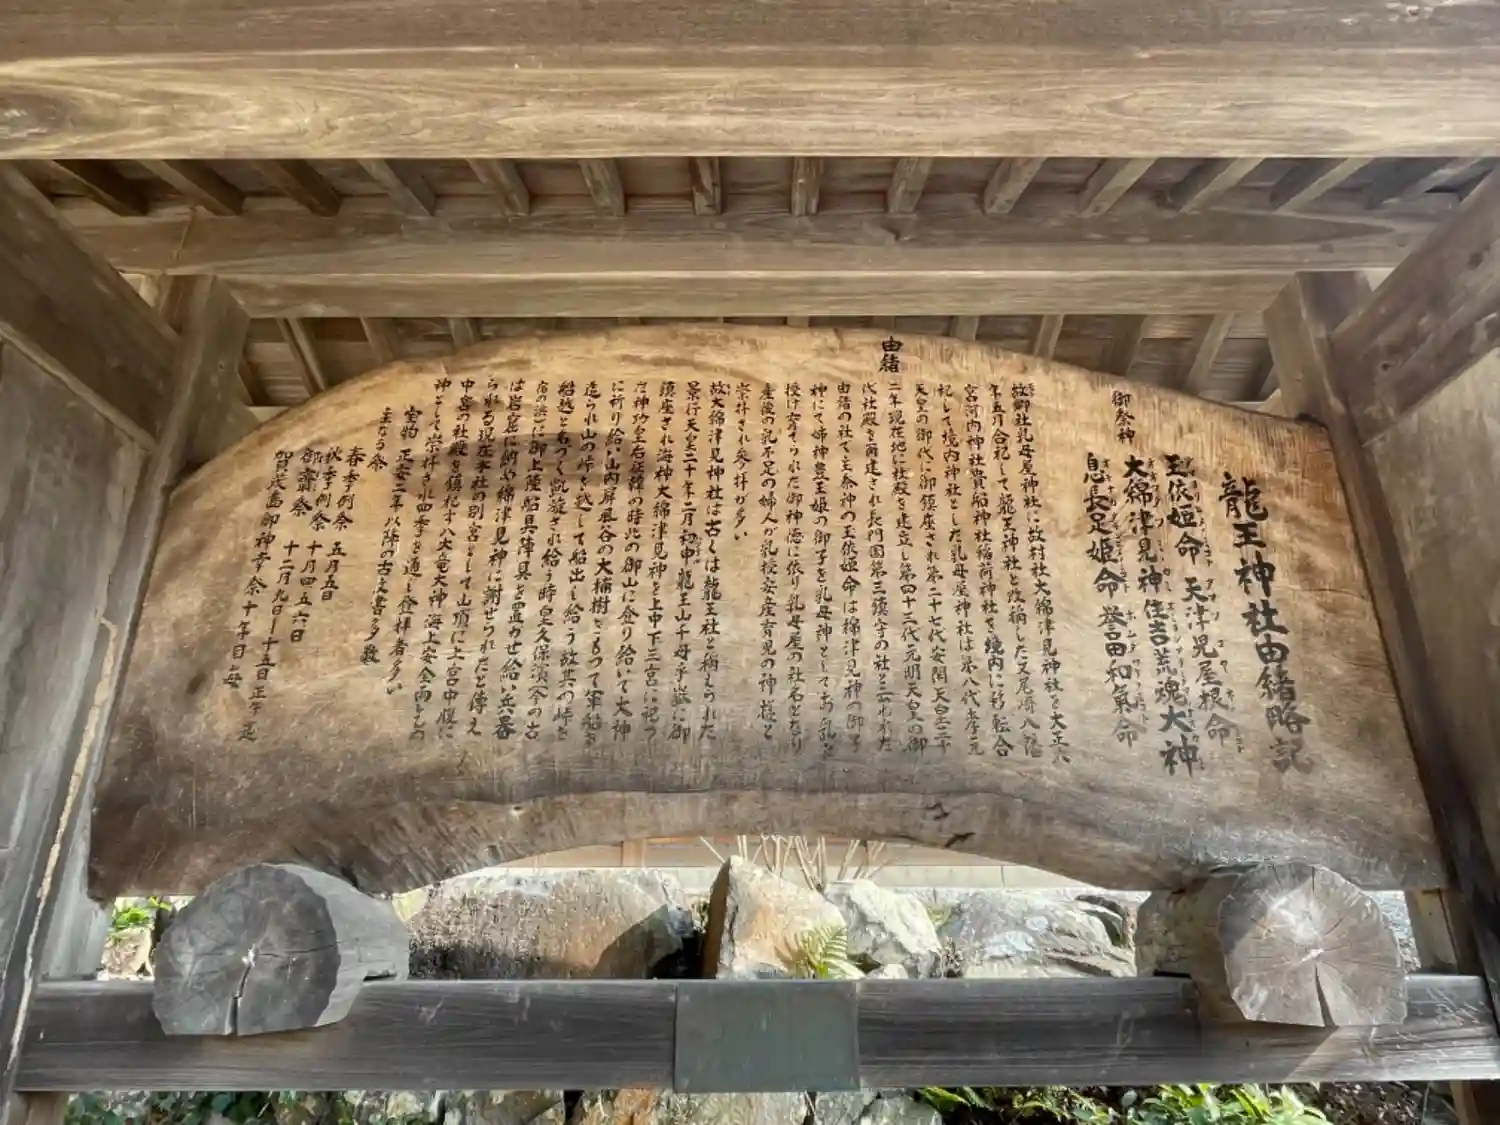 龍王神社由緒略記
御祭神
玉依姫命 天津児屋根命
大綿津見神 住吉荒魂大神
息長足姫命 誉田和氣命
由緒
故郷社乳母屋神社に故村社大綿津見神社を大正六
年五月合祀して龍王神社と改称した又尾崎八幡
宮河内神社貴船神社稲荷神社を境内に移転合
祀して境内神社とした乳母屋神社は第八代孝元
天皇の御代に御鎮座され第二十七代安閑天皇二十
二年現在地に社殿を建立し第四十三代元明天皇の御
代社殿を再建され長門国第三鎮守の社と云われた
由緒の社で主祭神の玉依姫命は綿津見神の御子
神にて姉神豊玉姫の御子を乳母神としてお乳を
授け育てられた御神徳に依り乳母屋の社名となり
産後の乳不足の婦人が乳授安産育児の神様と
崇拝され参拝が多い
故大綿津見神社は古くは龍王社と称えられた
景行天皇二十年二月初申龍王山千母手嶽に御
鎮座され海神大綿津見神を上中下三宮に祀つ
た神功皇后征韓の時此の御山に登り給いて大神
に祈り給い山内屏風谷の大楠樹をもつて軍船を
造られ山の峠を越して船出し給う故其の峠を
船越と名づく凱旋され給う時皇久保濱(今の古
宿の浜)に御上陸船具陣具を置かせ給い兵器
は岩窟に納や綿津見神に謝せられたと傳え
られる現在本社の別宮として山頂に上宮中腹に
中宮の社殿を鎮祀す八大竜大神海上安全雨乞の
神として崇拝され四季を通し登拝者多い
宝物 正安二年以降の古文書多数
主なる祭
春季例祭 五月五日
秋季例祭 十月四五六日
御斎祭 十二月九日ー十五日正午迄
賀茂島御神幸祭十年目毎